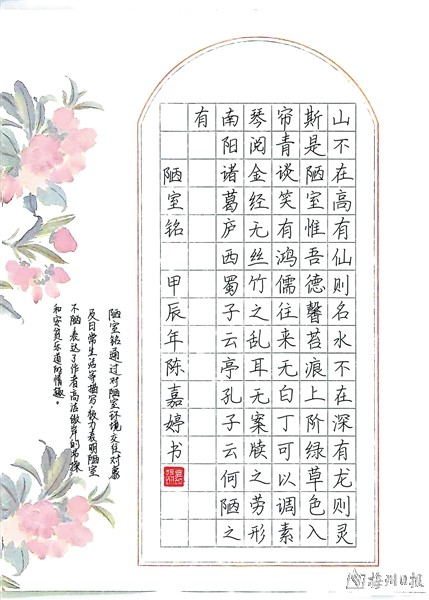 山不在高有仙则名水不在深有龙则灵
斯是陋室惟吾德馨苔痕上阶绿草色入
帘青谈笑有鸿儒往来无白丁可以调素
琴阅金经无丝竹之乱耳无案牍之劳形
南阳诸葛庐西蜀子云亭孔子云何陋之
有
陋室铭 甲辰年陈嘉婷书
陋室铭通过对陋室环境交往对象
及日常生活等描写,极力表明陋室
不陋表达了作者高洁傲岸的节操
和安贫乐道的情趣。
梅州日报